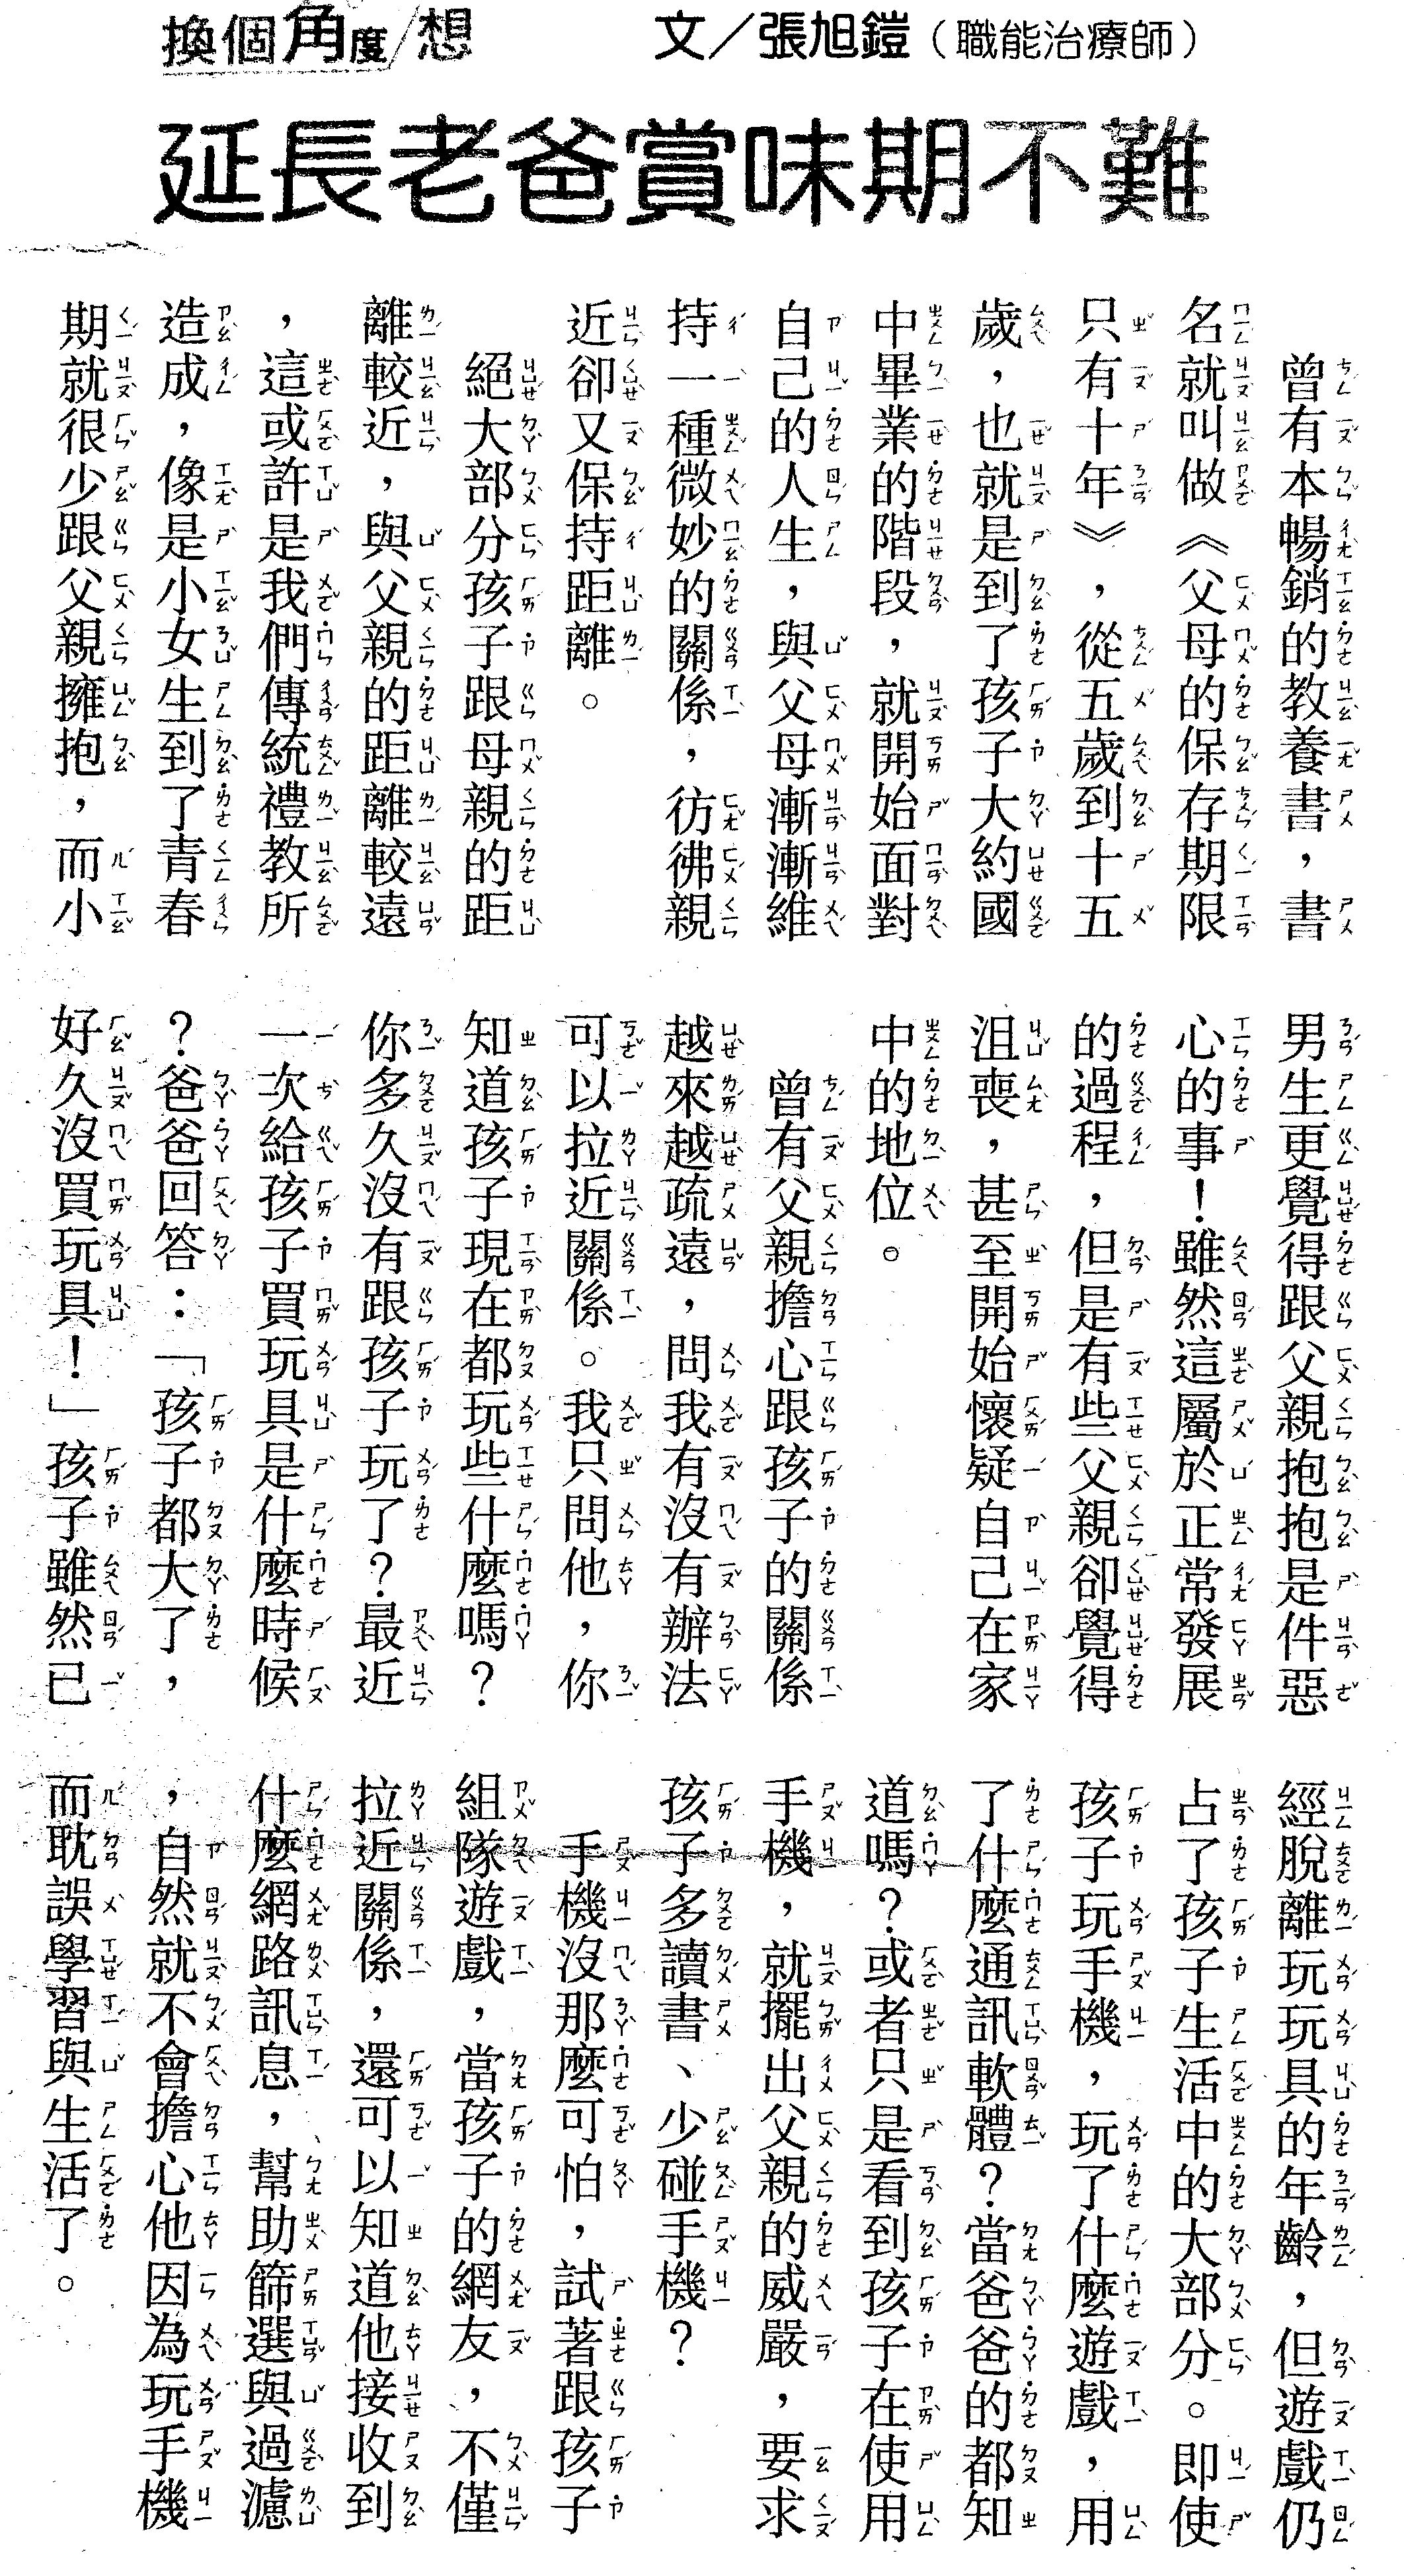 換個角度/想
文/張旭鎧(職能治療師)
延長老爸賞味期不難
曾有本暢銷的教養書,書
名就叫做《父母的保存期限
只有十年》,從五歲到十五
歲,也就是到了孩子大約國
中畢業的階段,就開始面對
自己的人生,與父母漸漸維
持一種微妙的關係,彷彿親
近卻又保持距離。
絕大部分孩子跟母親的距
離較近,與父親的距離較遠
,這或許是我們傳統禮教所
造成,像是小女生到了青春
期就很少跟父親擁抱,而小
男生更覺得跟父親抱抱是件惡
心的事!雖然這屬於正常發展
的過程,但是有些父親卻覺得
沮喪,甚至開始懷疑自己在家
中的地位。
曾有父親擔心跟孩子的關係
越來越疏遠,問我有沒有辦法
可以拉近關係。我只問他,你
知道孩子現在都玩些什麼嗎?
你多久沒有跟孩子玩了?最近
一次給孩子買玩具是什麼時候
?爸爸回答:「孩子都大了,
好久沒買玩具!」孩子雖然已
經脫離玩玩具的年齡,但遊戲仍
占了孩子生活中的大部分。即使
孩子玩手機,玩了什麼遊戲,用
了什麼通訊軟體?當爸爸的都知
道嗎?或者只是看到孩子在使用
手機,就擺出父親的威嚴,要求
孩子多讀書、少碰手機?
手機沒那麼可怕,試著跟孩子
組隊遊戲,當孩子的網友,不僅
拉近關係,還可以知道他接收到
什麼網路訊息,幫助篩選與過濾
,自然就不會擔心他因為玩手機
而耽誤學習與生活了。